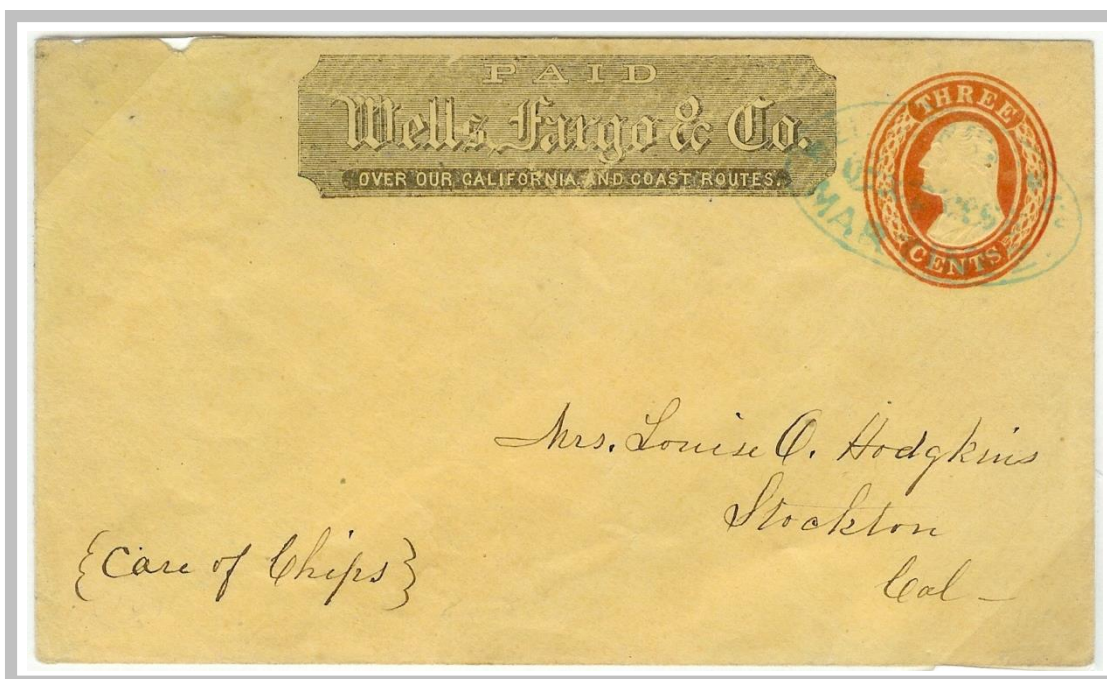 PAID
Wells, Fargo & Co.
OVER OUR CALIFORNIA AND COAST ROUTES.
THREE
CENTS
MAR
Mrs. Louise O. Hodgkins
Stockton
Cal -
{Care of Chips}